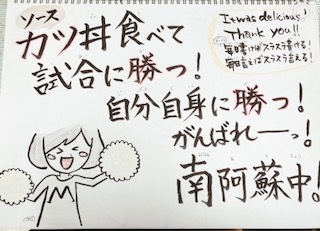 ソース
カツ丼食べて
試合に勝つ!
自分自身に勝つ!
がんばれーっ!
南阿蘇中!
It was delicious!
Thank you!!
毎日書けばスラスラ書ける!
毎日言えばスラスラ言える!
M